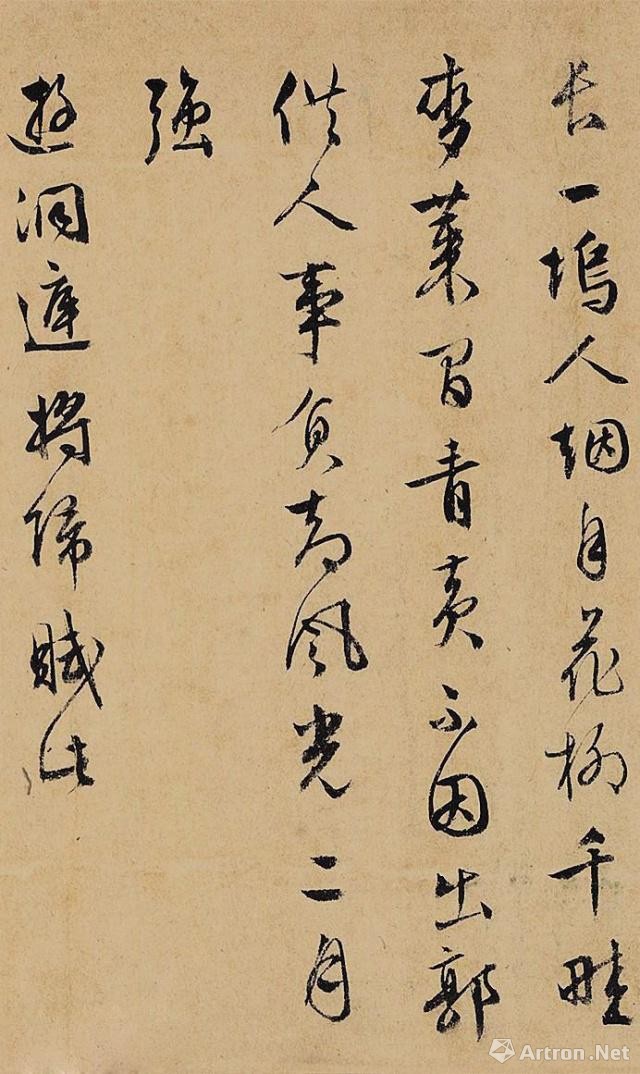 長一塢人烟自花柳千畦
麥菜間青黃不因出郭
供人事負却風光二月
強
遊洞庭將歸賦此
Artron.Net